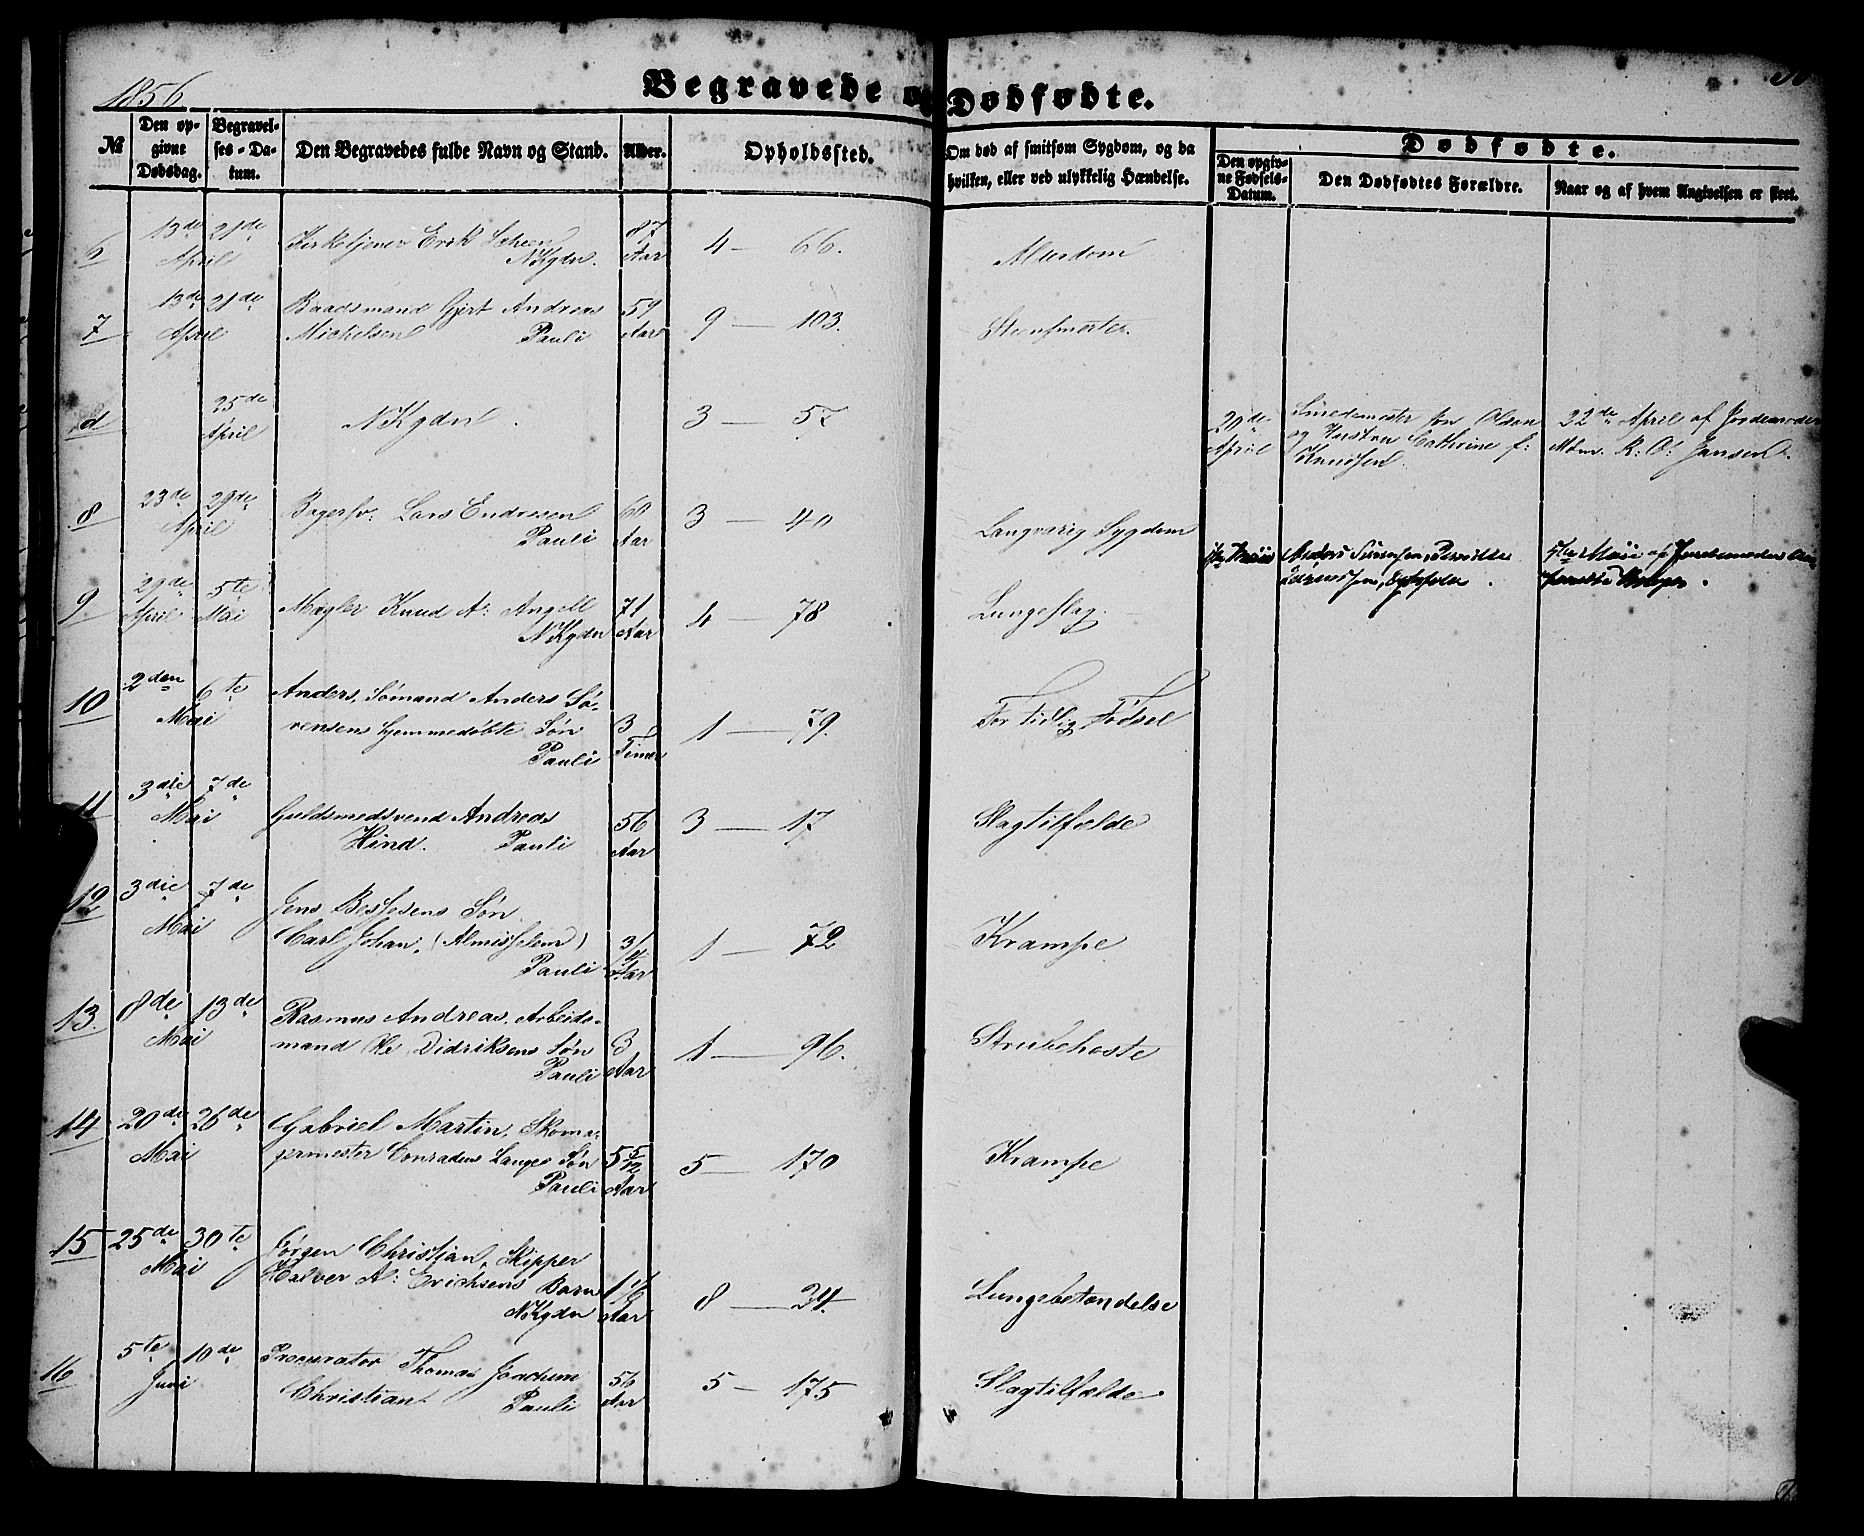 1856
Begravede og Dødfødte.
№
Den opgivne Dødsdag.
Begravelses-Datum.
Den Begravedes fulde Navn og Stand.
Alder.
Opholdssted.
Om død af smitsom Sygdom, og da hvilken, eller ved ulykkelig Hændelse.
Dødfødte.
Den opgivne Fødsels-Datum.
Den Dødfødtes Forældre.
Naar og af hvem Angivelsen er skeet.
6 13de April 21de Kirketjener Erik Scheen NKgdn. 87 Aar 4 — 66. Alderdom
7 13de April 21de Baadsmand Gjert Andreas
Michelsen Pauli 59 Aar 9 — 103.
d 25de April NKgdn 3 — 57 20de April Smedemester Jon Olsen
og Hustru Cathrine f:
Knudsen. 22de April af Jordemoder
Mdm. R: O: Jansen.
8 23de April 29de Lars Endresen
Pauli 60 Aar 3 — 40 Langvarig Sygdom
5te Mai af Jordemoder
9 29de April 5te Mai Mægler Knud A: Angell
NKgdn 71 Aar 4 — 78 Lungeslag.
10 2den Mai 6te Anders, Sømand Anders Sø-
rensens hjemmedøbte Søn
Pauli 3 Timer 1 — 79. For tidlig Fødsel
11 3die Mai 7de Guldsmedsvend Andreas
Hind. Pauli 56 Aar 3 — 17 Slagtilfælde
12 3die Mai 7de Jens Bessesens Søn
Carl Johan, (Almisselem)
Pauli 3/4 Aar 1 — 72 Krampe
13. 8de Mai 13de Rasmus Andreas, Arbeids-
mand Ole Didriksens Søn
Pauli 3 Aar 1 — 96. Strubehoste
14 20de Mai 26de Gabriel Martin, Skoma-
germester Conradus Langes Søn
Pauli 5 5/12 Aar 5 — 170 Krampe
15 25de Mai 30te Jørgen Christian, Skipper
Halver A: Erichsens Barn
NKgdn Aar 8 — 34. Lungebetændelse
16 5te Juni 10de Procurator Thomas Joachim
Christian Pauli 56 Aar 5 — 175 Slagtilfælde